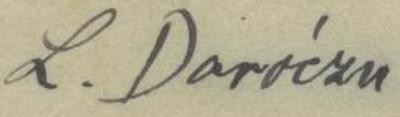 L. Daróczu